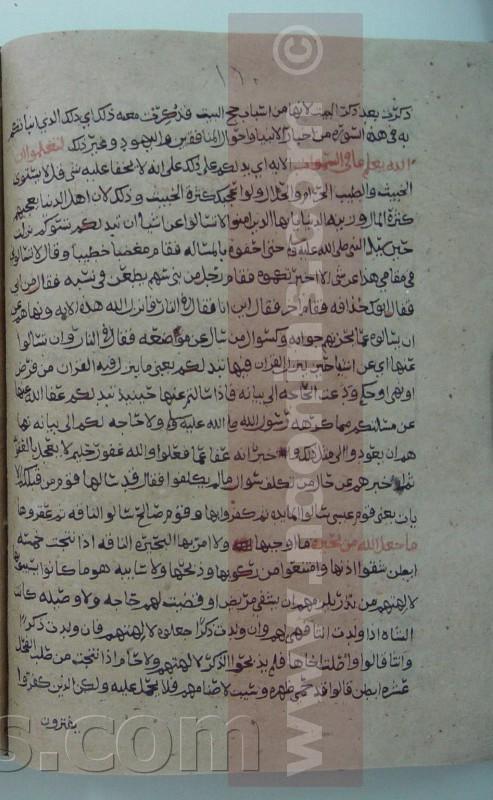 ١٦٠
ذكرت بعد ذكر البيت لانها من اسباب حج البيت فذكرت معه ذلك اي ذلك الذي انبأتكم
به في هذه السورة من اخبار الانبيا واحوال المنافقين واليهود وغير ذلك لتعلموا ان
الله يعلم ما في السموات الايه اي يدلكم على ذلك على انه لا يخفا عليه شي قل لا يستوى
الخبيث والطيب الحرام والحلال ولو اعجبك كثرة الخبيث وذلك لان اهل الدنيا يعجبهم
كثرة المال وزينه الدنيا يا ايها الذين امنوا لا تسالوا عن اشيا ان تبد لكم تسوكم نزلت
حين النبي صلى الله عليه وسلم حتى احفوه بالمساله فقام مغضبا خطيبا وقال لا تسالونى
في مقامي هذا عن شى الا اخبرتكموه فقام رجل من بنى سهم يطعن في نسبه فقال من ابي
فقال ابوك حذافه فقام اخر فقال اين انا فقال في النار فانزل الله هذه الايه ونهاهم عن
ان يسالوه عما يحزنهم جوابه كسوال من سال عن موضعه فقال في النار وان تسالوا
عنها اي عن اشيا حين ينزل القران فيها تبد لكم يعنى ما ينزل فيه القران من فرض
او نهي او حكم الحاجه الى بيانه فاذا سالتم عنها حينيذ تبد لكم عفا الله عنها
عن مسالتكم مما كرهه رسول الله صلى الله عليه وسلم ولا حاجه لكم الى بيانه نها
هم ان يعودوا الى مثل ذلك واخبر انه عفا عما فعلوا والله غفور حليم لا يعجل بالعقو
ثم اخبرهم عن حال من تكلف سوال ما لم يكلفوا فقال قد سالها قوم من قبلكم
يعنى قوم عيسى سالوا المايده ثم كفروا بها وقوم صالح سالوا الناقه ثم عقروها
ما جعل الله من بحيره ما اوجبها ولا امر بها البحيره الناقه اذا نتجت خمسه
ابطن شقوا اذنها وامتنعوا من ركوبها وذبحها ولا سايبه هو ما كانوا يسيبونه
لالهتهم من نذر يلزمهم ان يشفى مريض او قضيت لهم حاجه ولا وصيله كانت
الشاه اذا ولدت انثا فهي لهم وان ولدت ذكرا جعلوه لالهتهم فان ولدت ذكرا
وانثا قالوا وصلت اخاها فلم يذبحوا الذكر لالهتهم ولا حام اذا نتجت من صلب الفحل
عشرة ابطن قالوا قد حمى ظهره وسيب لاصنامهم فلا يحمل عليه ولكن الذين كفروا
يفترون